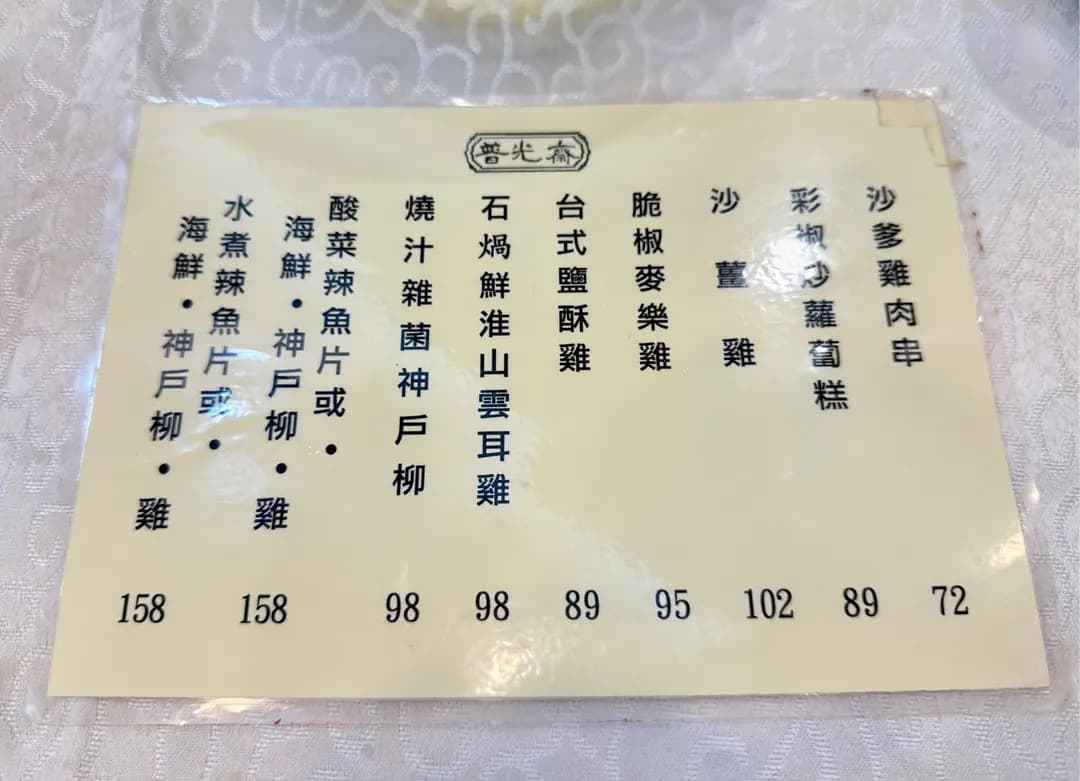 普光齋
沙爹雞肉串
72
彩椒炒蘿蔔糕
89
沙薑雞
102
脆椒麥樂雞
95
台式鹽酥雞
89
石煱鮮淮山雲耳雞
98
燒汁雜菌神戶柳
98
酸菜辣魚片或•
海鮮•神戶柳•雞
158
水煮辣魚片或•
海鮮•神戶柳•雞
158